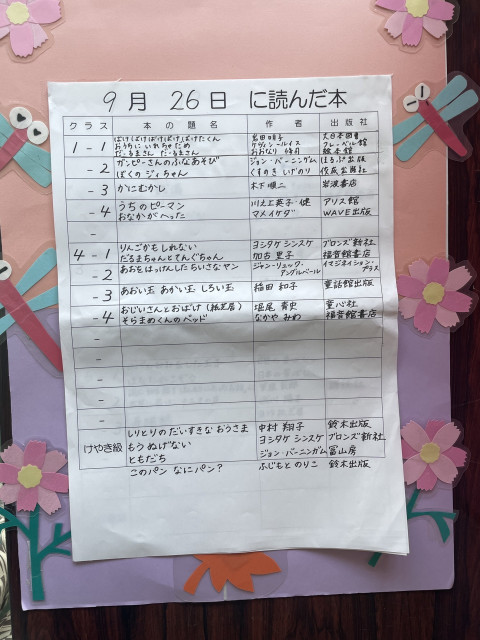 9月 26日 に読んだ本
クラス 本の題名 作者 出版社
1-1 ばけばけばけばけばけたくん 岩田明子 大日本図書
おうちにいれちゃだめ ケヴィン・ルイス フレーベル館
だるまさん だーるまさん おおなり修司 絵本館
-2 ガンピーさんのふなあそび ジョン・バーニンガム ほるぷ出版
ぼくのジィちゃん くすのきしげのり 佼成出版社
-3 かにむかし 木下順二 岩波書店
-4 うちのピーマン 川之上英子・健 アリス館
おなかがへった マメイケダ WAVE出版
4-1 りんごかもしれない ヨシタケ シンスケ ブロンズ新社
だるまちゃんとてんぐちゃん 加古里子 福音館書店
-2 あおをはっけんしたちいさなヤン ジャン・リュック・アングルベール イマジネイション・プラス
-3 あおい玉 あかい玉 しろい玉 稲田 和子 童話館出版
-4 おじいさんとおばけ(紙芝居) 堀尾 青史 童心社
そらまめくんのベッド なかや みわ 福音館書店
-
-
-
-
-
けやき級 しりとりのだいすきなおうさま 中村 翔子 鈴木出版
もうぬげない ヨシタケ シンスケ ブロンズ新社
ともだち ジョン・バーニンガム 冨山房
このパン なにパン? ふじもと のりこ 鈴木出版